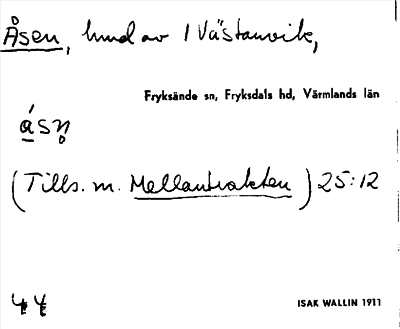 Åsen, hmd av 1 Västanvik,
Fryksände sn, Fryksdals hd, Värmlands län
ásn̥
(Tills. m. Mellantrakten) 25:12
44
ISAK WALLIN 1911